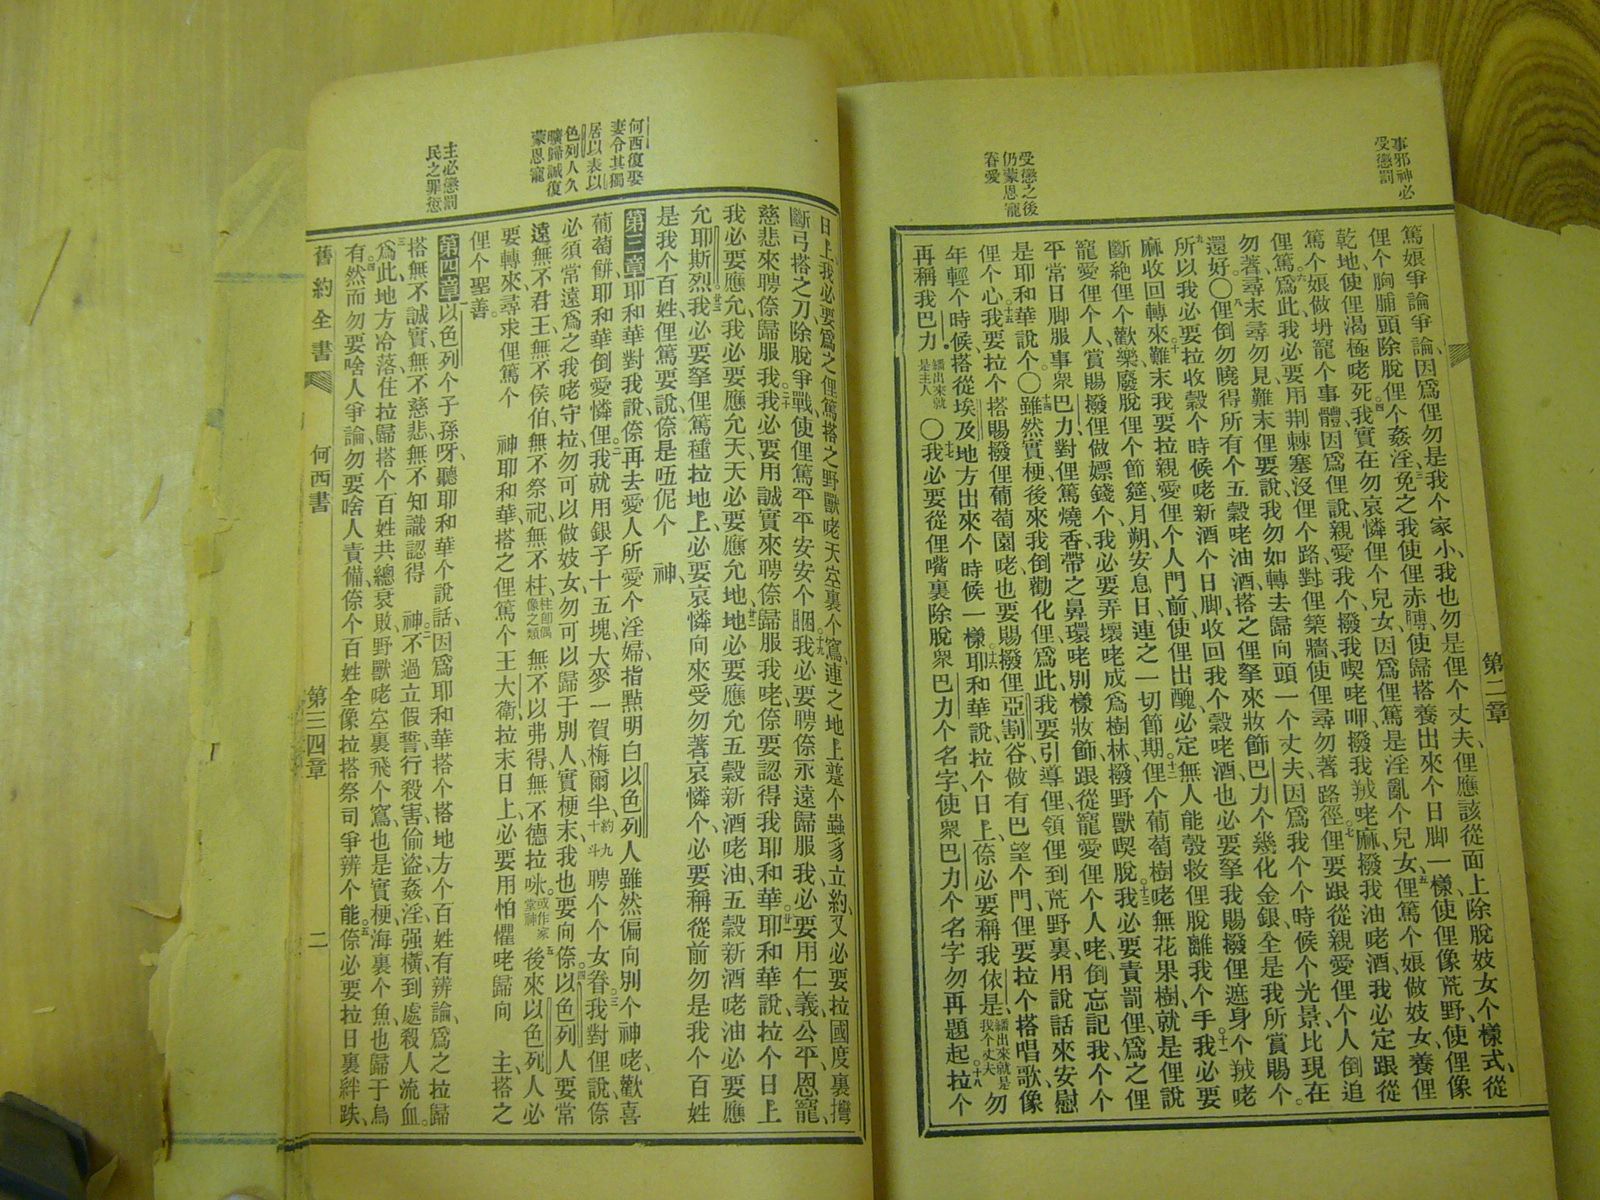 事邪神必
受懲罰
受懲之後
仍蒙恩寵
眷愛
第二章
篤娘爭論爭論、因爲俚勿是我个家小、我也勿是俚个丈夫、俚應該從面上除脫妓女个樣式、從
俚个胸脯頭除脫俚个姦淫、免之我使俚赤膊、使歸搭養出來个日脚一樣、使俚像荒野、使俚像
乾地、使俚渴極咾死。我實在勿哀憐俚个兒女、因爲俚篤是淫亂个兒女。俚篤个娘做妓女、養俚
篤个娘做坍寵个事體、因爲俚說、親愛我个、撥我喫咾呷、撥我羢咾麻、撥我油咾酒、我必定跟從
俚篤。爲此我必要用荆棘塞沒俚个路、對俚築牆、使俚尋勿著路徑。俚要跟從親愛俚个人、倒追
勿著、尋末尋勿見、難末俚要說、我勿如轉去歸向頭一个丈夫、因爲我个个時候个光景、比現在
還好。〇俚倒勿曉得所有个五穀咾油酒、搭之俚拏來妝飾巴力个幾化金銀、全是我所賞賜个。
所以我必要拉收穀个時候咾新酒个日脚、收回我个穀咾酒、也必要拏我賜撥俚遮身个羢咾
麻收回轉來。難末我要拉親愛俚个人門前、使俚出醜、必定無人能彀救俚脫離我个手。我必要
斷絕俚个歡樂、廢脫俚个節筵、月朔、安息日、連之一切節期。俚个葡萄樹咾無花果樹、就是俚說
寵愛俚个人賞賜撥俚做嫖錢个、我必要弄壞咾成爲樹林、撥野獸喫脫。我必要責罰俚、爲之俚
平常日脚服事衆巴力、對俚篤燒香、帶之鼻環咾別樣妝飾、跟從寵愛俚个人咾、倒忘記我个、
是耶和華說个。〇雖然實梗、後來我倒勸化俚、爲此我要引導俚、領俚到荒野裏、用說話來安慰
俚个心。我要拉个搭賜撥俚葡萄園咾、也要賜撥俚亞割谷做有巴望个門、俚要拉个搭唱歌、像
年輕个時候、搭從埃及地方出來个時候一樣。耶和華說、拉个日上、倷必要稱我依是、繙出來就是我个丈夫勿
再稱我巴力。繙出來就是主人〇我必要從俚嘴裏除脫衆巴力个名字、使衆巴力个名字勿再題起。拉个
何西復娶
妻令其獨
居以表以
色列人久
曠歸誠復
蒙恩寵
主必懲罰
民之罪愆
日上、我必要爲之俚篤、搭之野獸咾、天空裏个窩、連之地上躄个蟲豸立約、又必要拉國度裏攑
斷弓搭之刀、除脫爭戰、使俚篤平平安安个睏。我必要聘倷永遠歸服我、必要用仁義、公平、恩寵、
慈悲、來聘倷歸服我。我必要用誠實來聘倷歸服我咾、倷要認得我耶和華。耶和華說、拉个日上
我必要應允、我必要應允天、天必要應允地。地必要應允五穀新酒咾油、五穀新酒咾油、必要應
允耶斯烈。我必要拏俚篤種拉地上、必要哀憐向來受勿著哀憐个、必要稱從前勿是我个百姓
是我个百姓、俚篤要說、倷是㕶伲个　神、
第三章耶和華對我說、倷再去愛人所愛个淫婦、指點明白以色列人雖然偏向別个神咾、歡喜
葡萄餅、耶和華倒愛憐俚。我就用銀子十五塊、大麥一賀梅爾半、約九十斗聘个个女眷。我對俚說、倷
必須常遠爲之我咾守拉、勿可以做妓女、勿可以歸于別人、實梗末、我也要向倷。以色列人要常
遠無不君王、無不侯伯、無不祭祀、無不柱、柱卽偶像之類無不以弗得、無不德拉㕲。或作家堂神後來以色列人必
要轉來、尋求俚篤个　神耶和華、搭之俚篤个王大衛、拉末日上、必要用怕懼咾歸向　主、搭之
俚个聖善。
第四章以色列个子孫呀、聽耶和華个說話、因爲耶和華搭个搭地方个百姓有辨論、爲之拉歸
搭無不誠實、無不慈悲、無不知識認得　神。不過立假誓、行殺害、偷盜姦淫、强橫、到處殺人流血。
爲此地方冷落、住拉歸搭个百姓共總衰敗、野獸咾空裏飛个窩、也是實梗、海裏个魚也歸于烏
有。然而勿要啥人爭論、勿要啥人責備、倷个百姓全像拉搭祭司爭辨个能、倷必要拉日裏絆跌、
舊約全書
何西書
第三四章
二